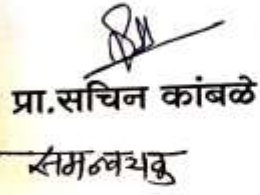 प्रा.सचिन कांबळे
समन्वयक